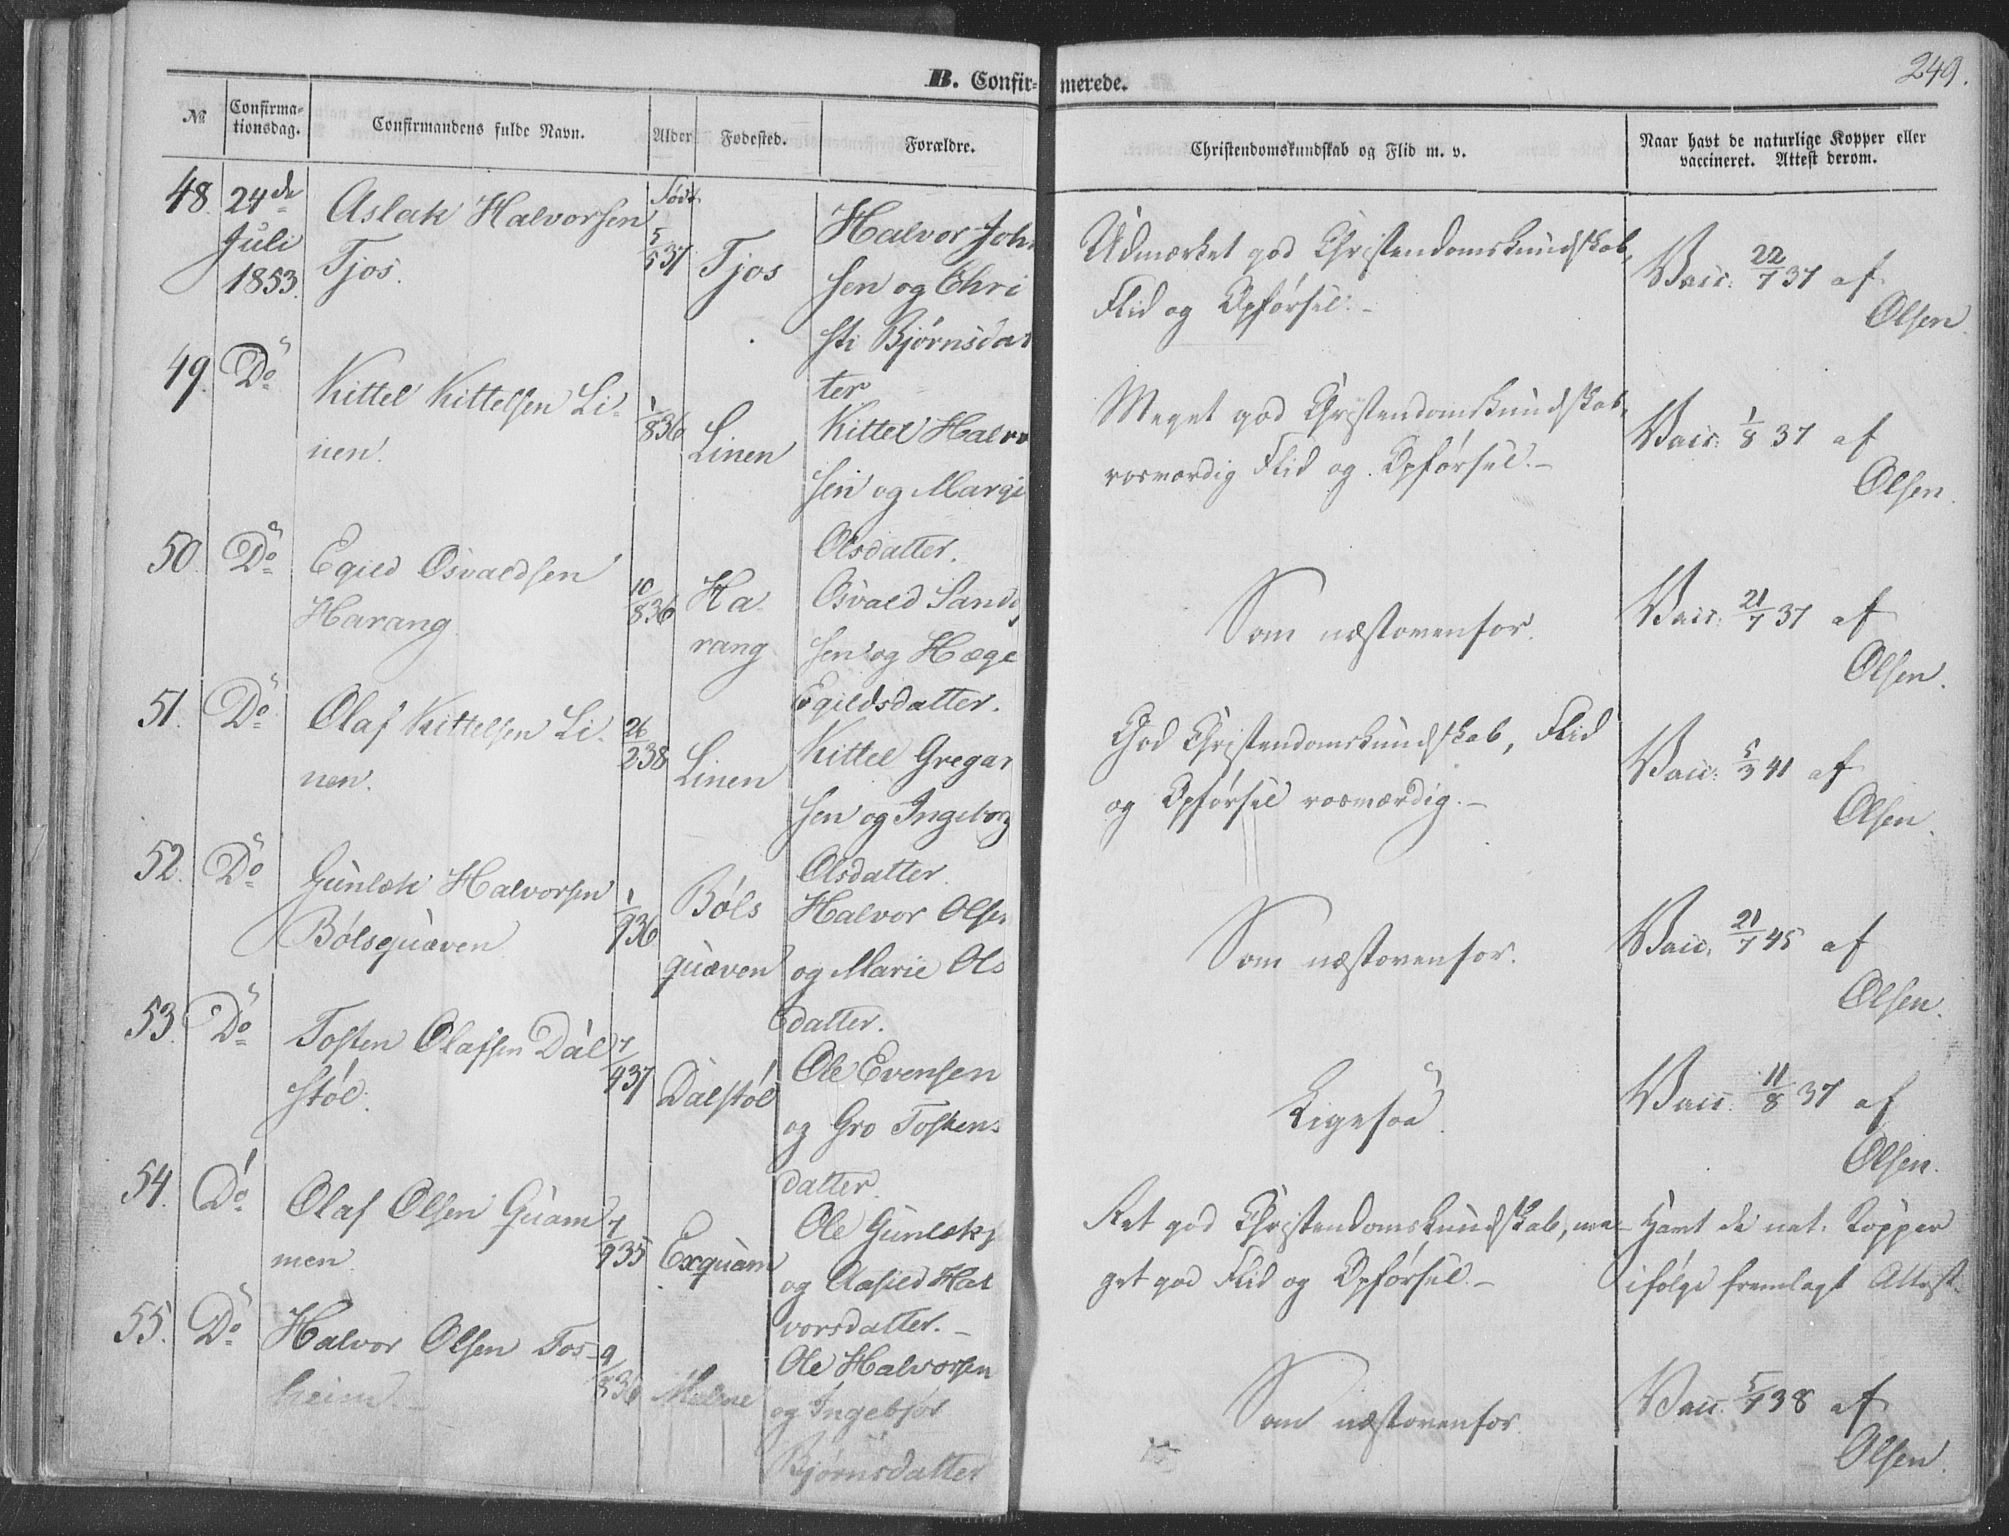 249.
B. Confirmerede.
№ Confirmationsdag. Confirmandens fulde Navn. Alder Fødested. Forældre. Christendomskundskab og Flid m. v. Naar havt de naturlige Kopper eller vaccineret. Attest derom.
48. 24de Aslak Halvorsen Født
Juli Tjos. 5/5 37 Tjos Halvor Joh
1853. sen og Chri
sti Bjørnsdat
ter
Udmærket god Christendomskundskab,
Flid og Opførsel. -
Vacc: 22/7 37 af
Olsen.
49. Do Kittel Kittelsen Li-
nen. 1/8 36 Linen Kittel Halvor
sen og Margi
Olsdatter.
Meget god Christendomskundskab,
rosværdig Flid og Opførsel. -
Vacc: 1/8 37 af
Olsen.
50. Do Egild Osvaldsen
Harang. 10/8 36 Ha
rang Osvald Sand
sen og Hæge
Egildsdatter.
Som næstovenfor.
Vacc: 21/7 37 af
Olsen.
51. Do Olaf Kittelsen Li-
nen. 26/2 38 Linen Kittel Gregar
sen og Ingeborg
Olsdatter.
God Christendomskundskab, Flid
og Opførsel rosværdig. -
Vacc: 5/3 41 af
Olsen.
52. Do Gunlek Halvorsen
Bølsquæven 1/9 36 Bøls
quæven Halvor Olsen
og Marie Ols
datter.
Som næstovenfor.
Vacc. 21/7 45 af
Olsen.
53. Do Tosten Olafsen Dal
støl. 7/4 37 Dalstøl Ole Evensen
og Gro Tostens
datter.
Ligesaa.
Vacc: 11/8 37 af
Olsen.
54. Do Olaf Olsen Quam
men. 7/9 35 Exquam Ole Gunleks
og Aasild Hal
vorsdatter. -
Ret god Christendomskundskab, me-
get god Flid og Opførsel. -
Havt de nat. Kopper
ifølge fremlagt Attest.
55. Do Halvor Olsen Tos-
heim. 9/5 36 Ole Halvorsen
og Ingebjør
Bjørnsdatter
Som næstovenfor.
Vacc. 5/7 38 af
Olsen.